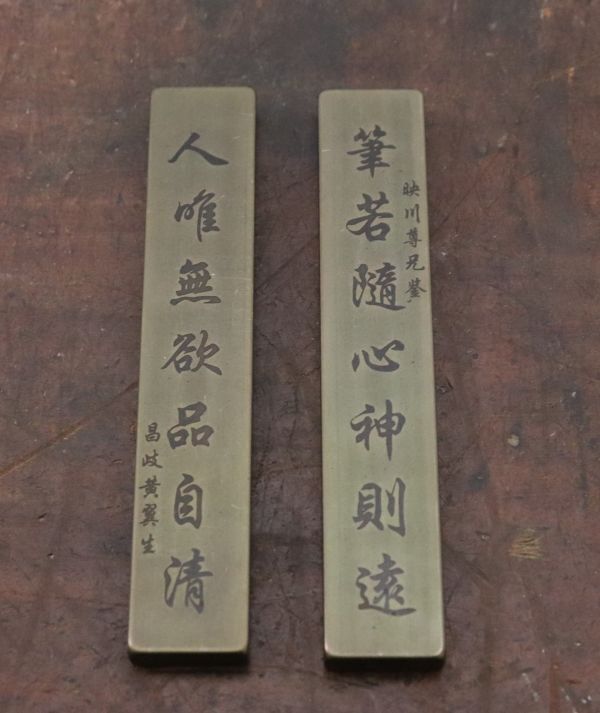 筆若隨心神則遠
映川尊兄鑒
人唯無欲品自清
昌歧黄翼生